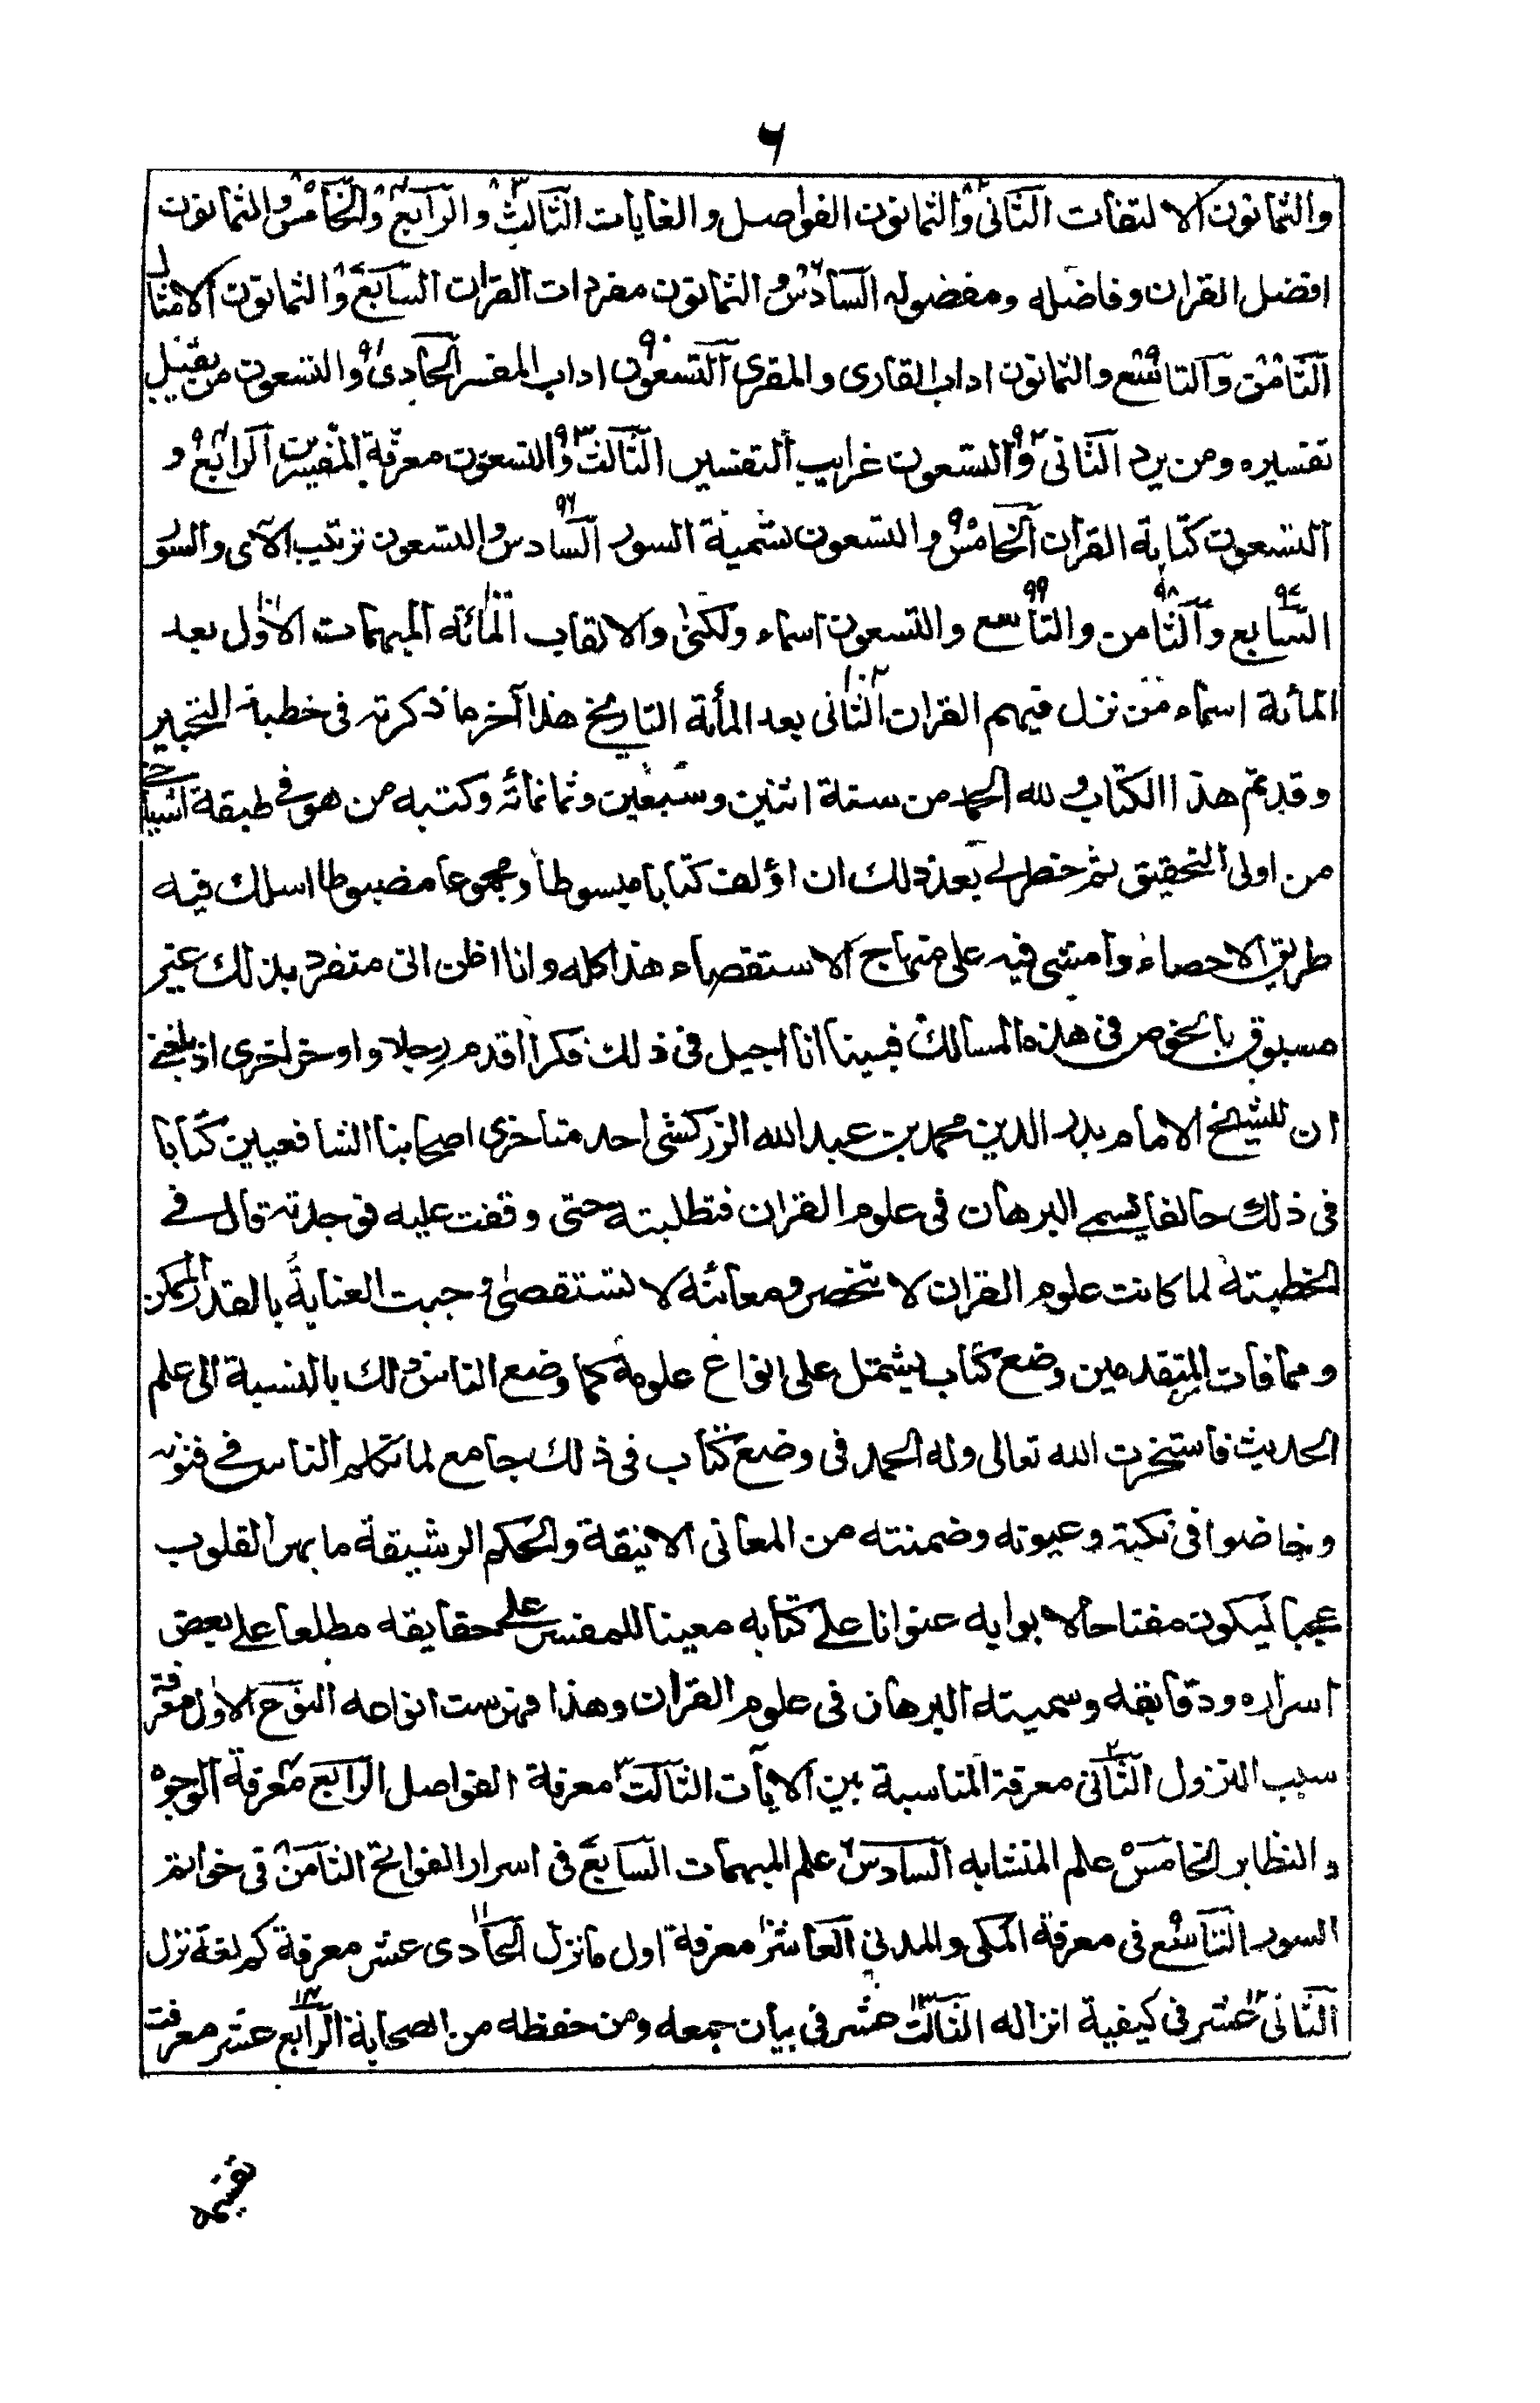 ٦
والثمانون الالتفات الثانى والثمانون الفواصل والغايات الثالث والرابع والخامس والثمانون
افضل القران وفاضله ومفضوله السادس والثمانون مفردات القران السابع والثمانون الامثال
الثامن والتاسع والثمانون اداب القارى والمقرى التسعون اداب المفسر الحادى والتسعون من يقبل
تفسيره ومن يرد الثانى والتسعون غرايب التفسير الثالث والتسعون معرفة المفسرين الرابع و
التسعون كتابة القران الخامس والتسعون تسمية السور السادس والتسعون ترتيب الآى والسور
السابع والثامن والتاسع والتسعون اسماء ولكنى والالقاب المائه المبهمات الاول بعد
المأئة اسماء من نزل فيهم القران الثانى بعد المأئة التاريخ هذا آخر ما ذكرته فى خطبة التحبير
وقد تم هذا الكتاب ولله الحمد من سنة اثنين وسبعين وثمانمائه وكتبه من هو فى طبقة اشياخى
من اولى التحقيق ثم خطر لى بعد ذلك ان اؤلف كتابا مبسوطا ومجموعا مضبوطا اسلك فيه
طريق الاحصاء وامشى فيه على منهاج الاستقصاء هذا كله وانا اظن انى متفرد بذلك غير
مسبوق بالخوض فى هذه المسالك فبينا انا اجيل فى ذلك فكرا اقدم رجلا واوخر اخرى اذ بلغنى
ان للشيخ الامام بدر الدين محمد بن عبد الله الزركشى احد متاخرى اصحابنا الشافعيين كتابا
فى ذلك حالفا يسمى البرهان فى علوم القران فتطلبته حتى وقفت عليه فوجدته قال فى
الخطبته لما كانت علوم القران لا تنحصر ومعانئه لا تستقصى وجبت العناية بالقدر الممكن
ومما فات المتقدمين وضع كتاب يشتمل على انواع علومه كما وضع الناس ذلك بالنسبة الى علم
الحديث فاستخرت الله تعالى وله الحمد فى وضع كتاب فى ذلك جامع لما تكلم الناس فى فنونه
وخاضوا فى نكته وعيونه وضمنته من المعانى الانيقة والحكم الرشيقة ما بهر القلوب
عجبا ليكون مفتاحا لابوابه عنوانا على كتابه معينا للمفسر على حقايقه مطلعا على بعض
اسراره ودقايقه وسميته البرهان فى علوم القران وهذا فهرست انواعه النوع الاول معرفة
سبب النزول الثانى معرفة المناسبة بين الايات الثالث معرفة الفواصل الرابع معرفة الوجوه
و النظاير الخامس علم المتشابه السادس علم المبهمات السابع فى اسرار الفواتح الثامن فى خواتم
السور التاسع فى معرفة المكى والمدنى العاشر معرفة اول ما نزل الحادى عشر معرفة كم لغة نزل
الثانى عشر فى كيفية انزاله الثالث عشر فى بيان جمعه ومن حفظه من الصحابة الرابع عشر معرفت
تقسيمه